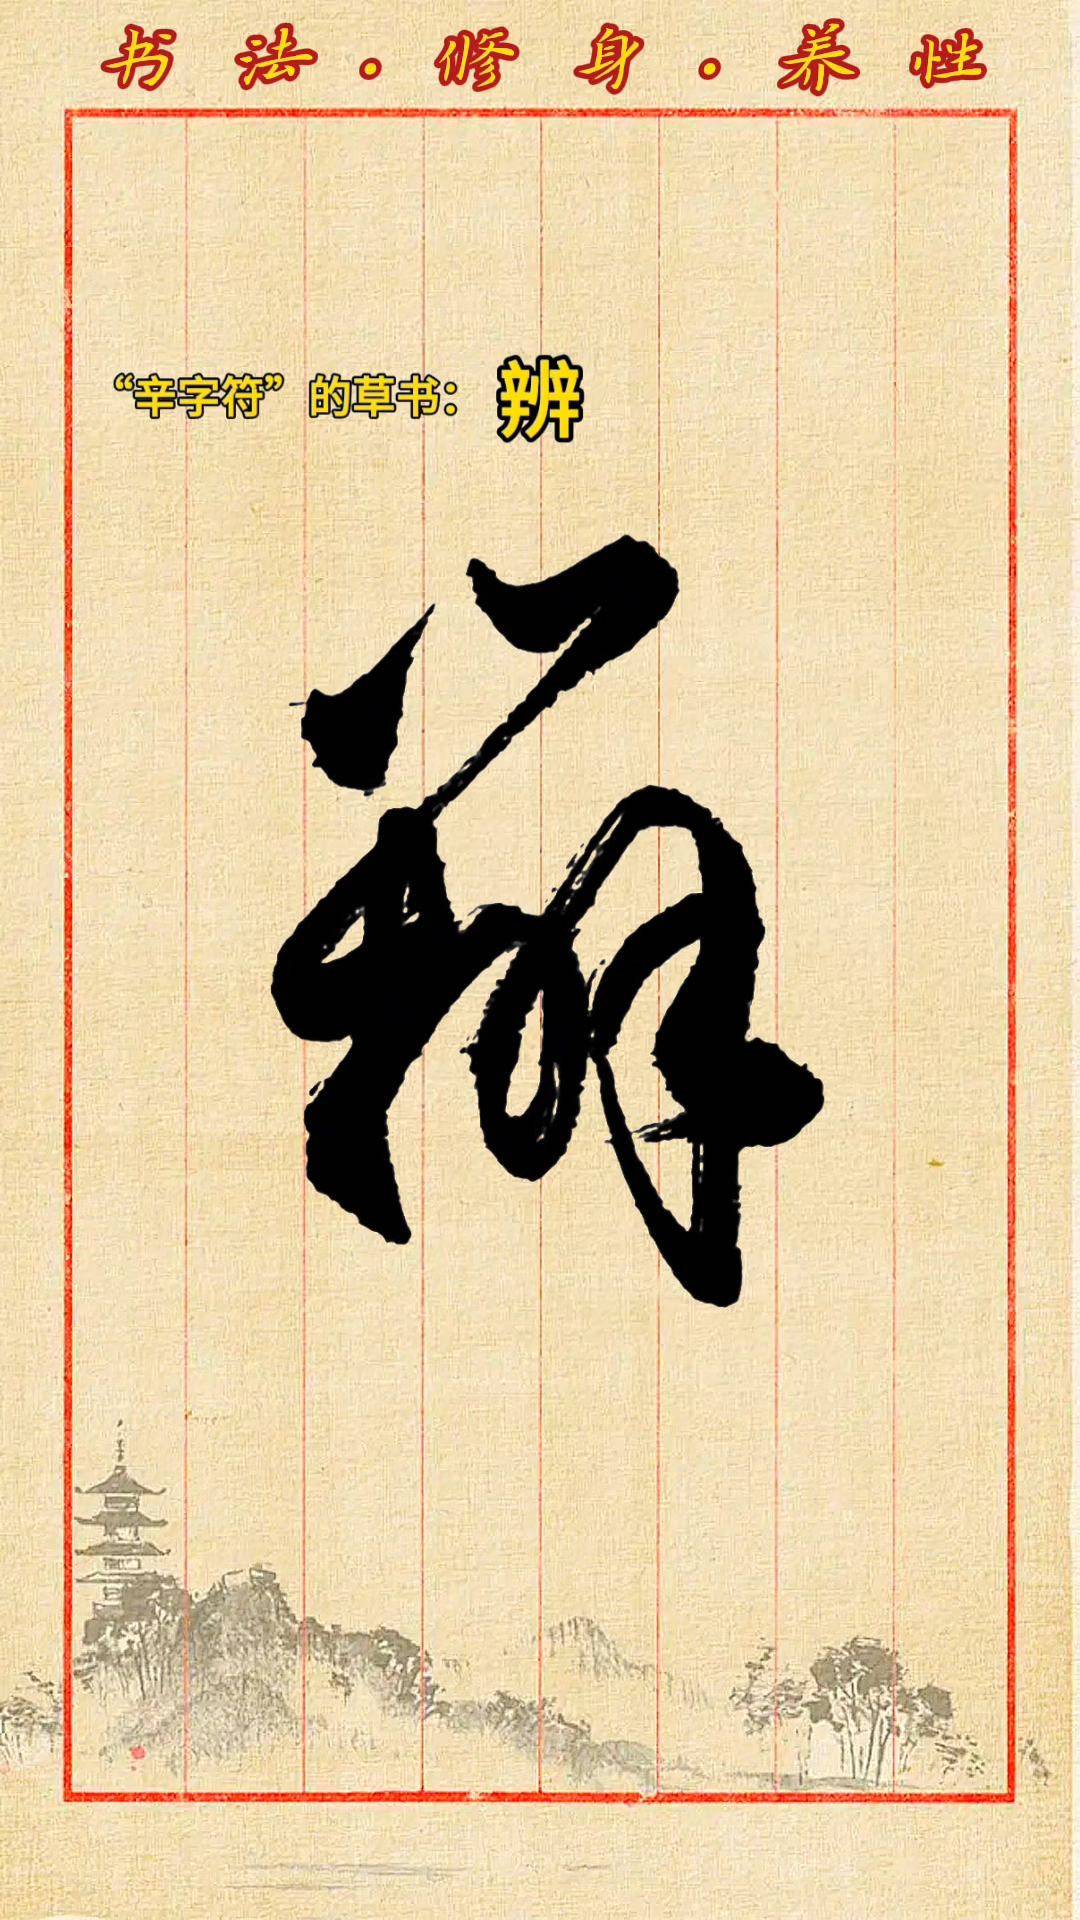 书法·修身·养性
“辛字符”的草书：辨
辨